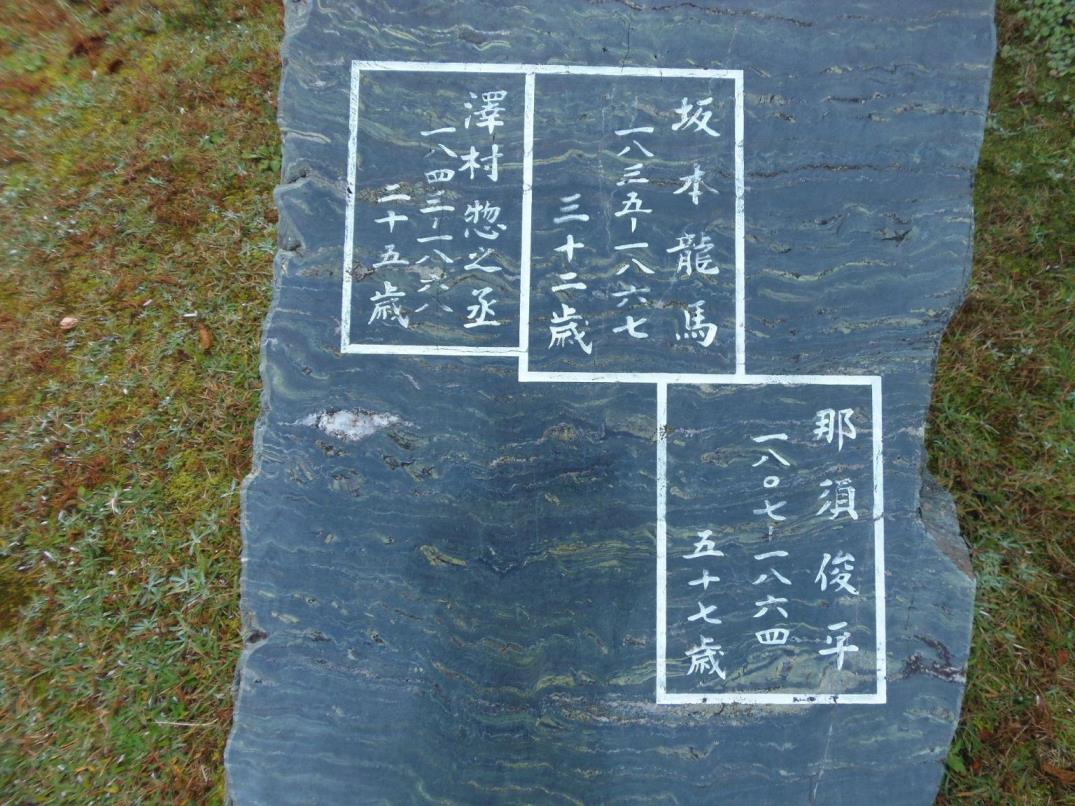 坂本龍馬
一八三五-一八六七
三十二歳
澤村惣之丞
一八四三-一八六八
二十五歳
那須俊平
一八〇七-一八六四
五十七歳